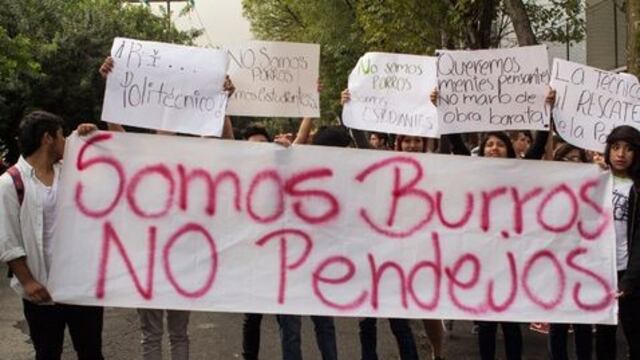 ¡R*... Politécnico!
No Somos
PORROS
Somos Estudiantes
No somos PORROS
Somos ESTUDIANTES
Queremos
mentes pensantes
No mano de
obra barata
La Técnica
al RESCATE
de la Patria
Somos Burros
NO Pendejos